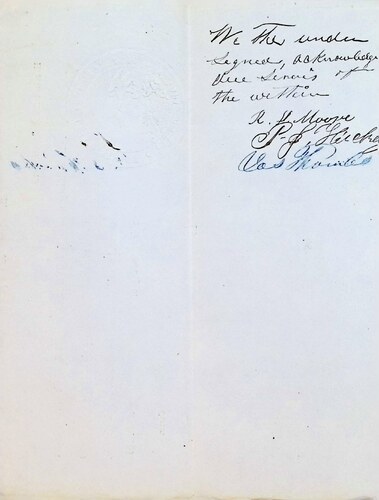 We the under
signed, acknowledge
due servis of
the within
R. H. Moore
P. J.
Jas